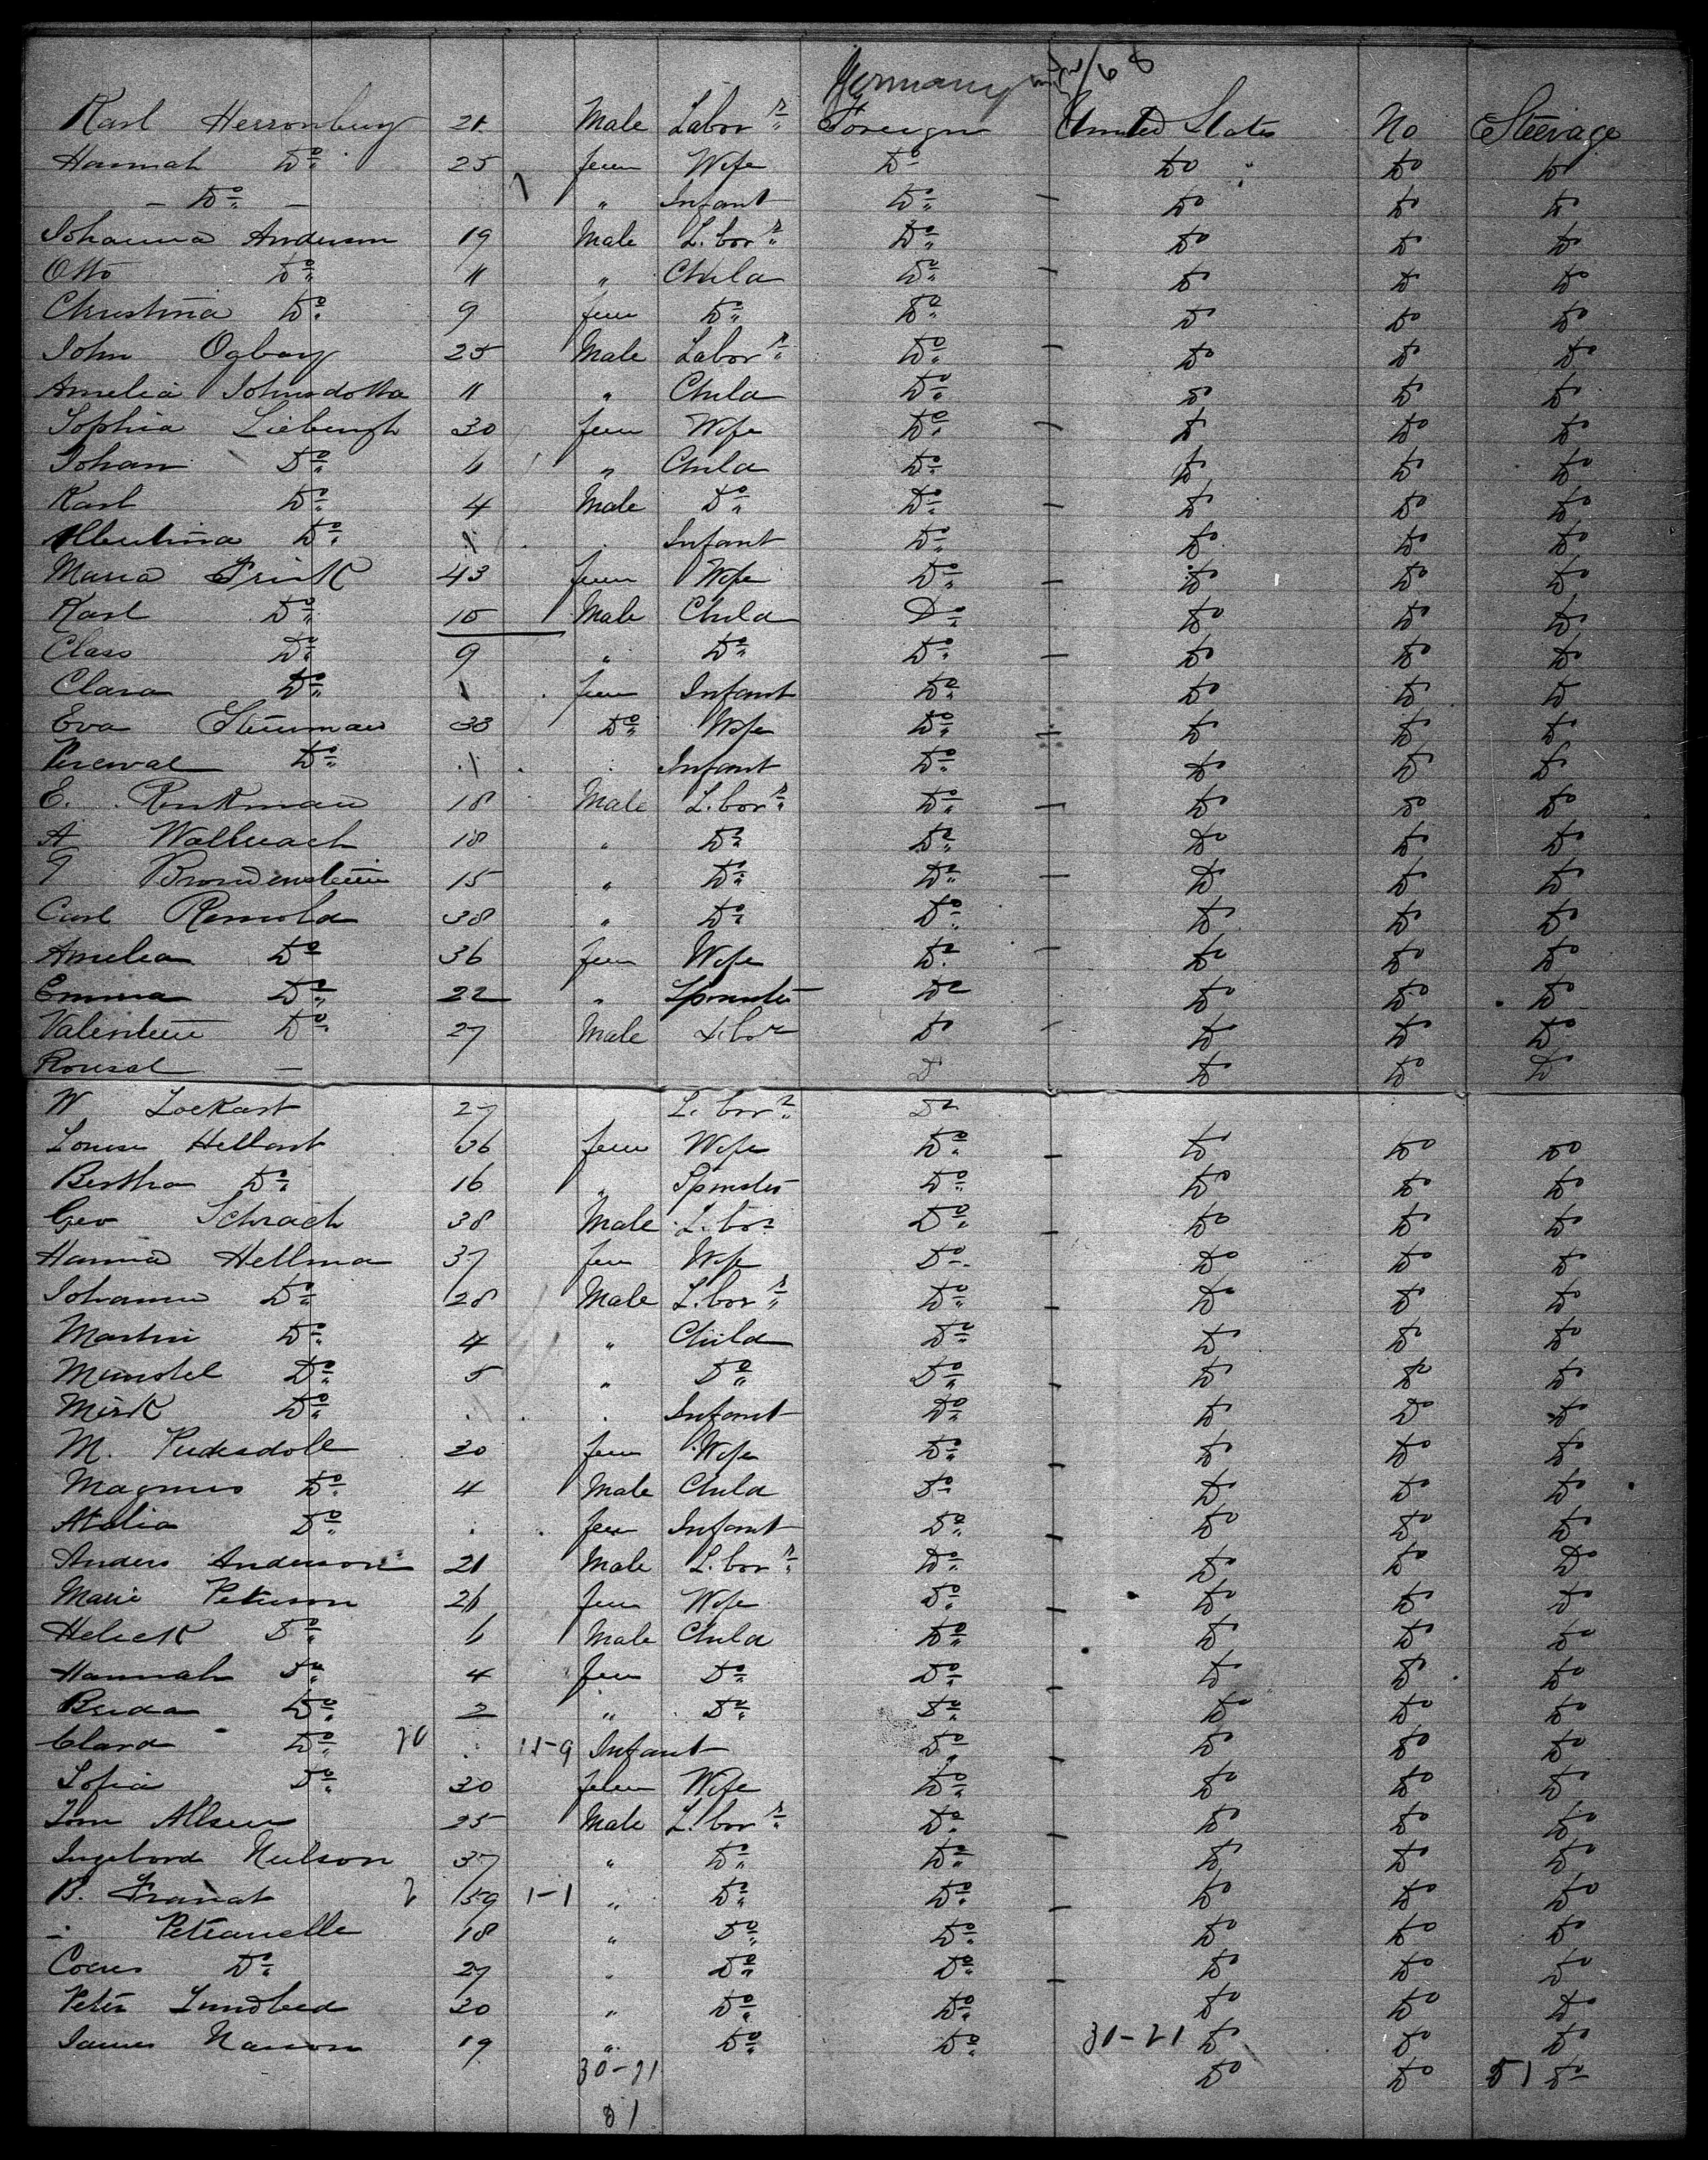 Germany
Karl Herronburg 21 Male Labor Foreign United States No Steerage
Hannah Do 25 fem Wife Do Do Do Do
— Do — " Infant Do Do Do Do
Johanna Anderson 19 Male Labor Do Do Do Do
Otto Do 11 " Child Do Do Do Do
Christina Do 9 fem Do Do Do Do Do
John Ogbory 25 Male Labor Do Do Do Do
Amelia Johnsdotta 11 " Child Do Do Do Do
Sophia 30 fem Wife Do Do Do Do
Johan Do 6 " Child Do Do Do Do
Karl Do 4 Male Do Do Do Do Do
Albertina Do 1 Infant Do Do Do Do
Maria Frink 43 fem Wife Do Do Do Do
Karl Do 10 Male Child Do Do Do Do
Class Do 9 " Do Do Do Do Do
Clara Do 1 fem Infant Do Do Do Do
Eva 33 Do Wife Do Do Do Do
Percival Do 1 Infant Do Do Do Do
E. 18 Male Labor Do Do Do Do
A Wallerach 18 " Do Do Do Do Do
G 15 " Do Do Do Do Do
Carl Remold 38 " Do Do Do Do Do
Amelia Do 36 fem Wife Do Do Do Do
Emma Do 22 " Spinster Do Do Do Do
Valentine Do 27 Male Labor Do Do Do Do
— Do Do Do Do
W Lockart 27 Labor Do
Louise Hellant 36 fem Wife Do Do Do Do
Bertha Do 16 " Spinster Do Do Do Do
Geo Schrach 38 Male Labor Do Do Do Do
Hanna Hellma 37 fem Wife Do Do Do Do
Johanna Do 28 Male Labor Do Do Do Do
Martin Do 4 " Child Do Do Do Do
Do 5 " Do Do Do Do Do
Do Infant Do Do Do Do
M. 30 fem Wife Do Do Do Do
Magnus Do 4 Male Child Do Do Do Do
Do fem Infant Do Do Do Do
Anders Anderson 21 Male Labor Do Do Do Do
Marie Peterson 26 fem Wife Do Do Do Do
Do 6 Male Child Do Do Do Do
Hannah Do 4 fem Do Do Do Do Do
Do 2 " Do Do Do Do Do
Clara Do Infant Do Do Do Do
Sofia Do 30 fem Wife Do Do Do Do
25 Male Labor Do Do Do Do
Ingebord Neilson 37 " Do Do Do Do Do
B. 59 1-1 " Do Do Do Do Do
Petranelle 18 " Do Do Do Do Do
Do 27 Do Do Do Do Do
Peter 30 " Do Do Do Do Do
James 19 " Do Do Do Do Do
30-21 Do Do 51 Do
51